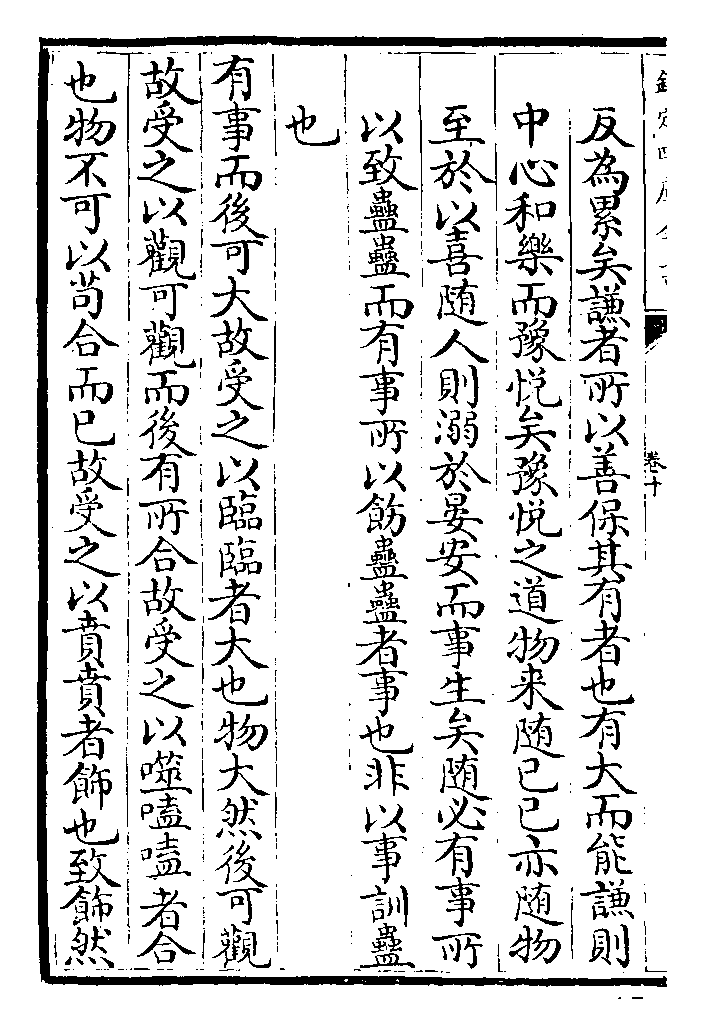 欽定四庫全書
卷十
反為累矣謙者所以善保其有者也有大而能謙則
中心和樂而豫悅矣豫悅之道物來随已已亦随物
至於以喜随人則溺於晏安而事生矣随必有事所
以致蠱蠱而有事所以飭蠱蠱者事也非以事訓蠱
也
有事而後可大故受之以臨臨者大也物大然後可觀
故受之以觀可觀而後有所合故受之以噬嗑嗑者合
也物不可以茍合而已故受之以賁賁者飾也致飾然